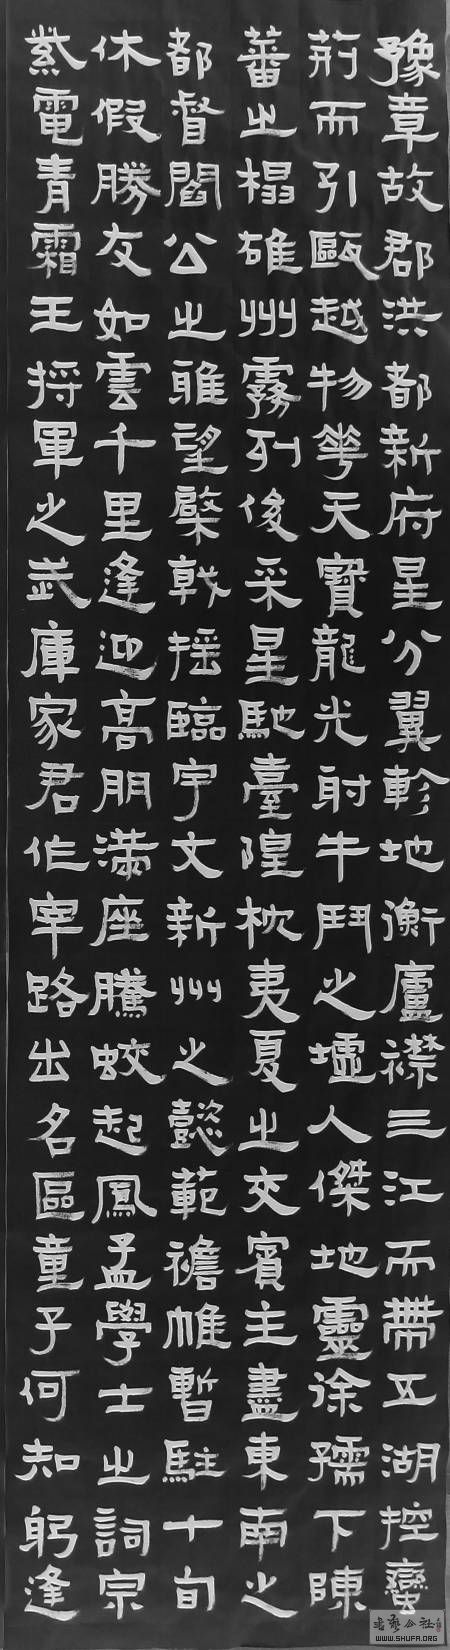 豫章故郡洪都新府星分翼軫地衡廬襟三江而帶五湖控蠻
荊而引甌越物華天寶龍光射牛鬥之墟人傑地靈徐孺下陳
蕃之榻雄州霧列俊采星馳臺隍枕夷夏之交賓主盡東南之
都督閻公之雅望棨戟搖臨宇文新州之懿範襜帷暫駐十旬
休假勝友如雲千里逢迎高朋滿座騰蛟起鳳孟學士之詞宗
紫電青霜王將軍之武庫家君作宰路出名區童子何知躬逢
書藝公社
WWW.SHUFA.ORG